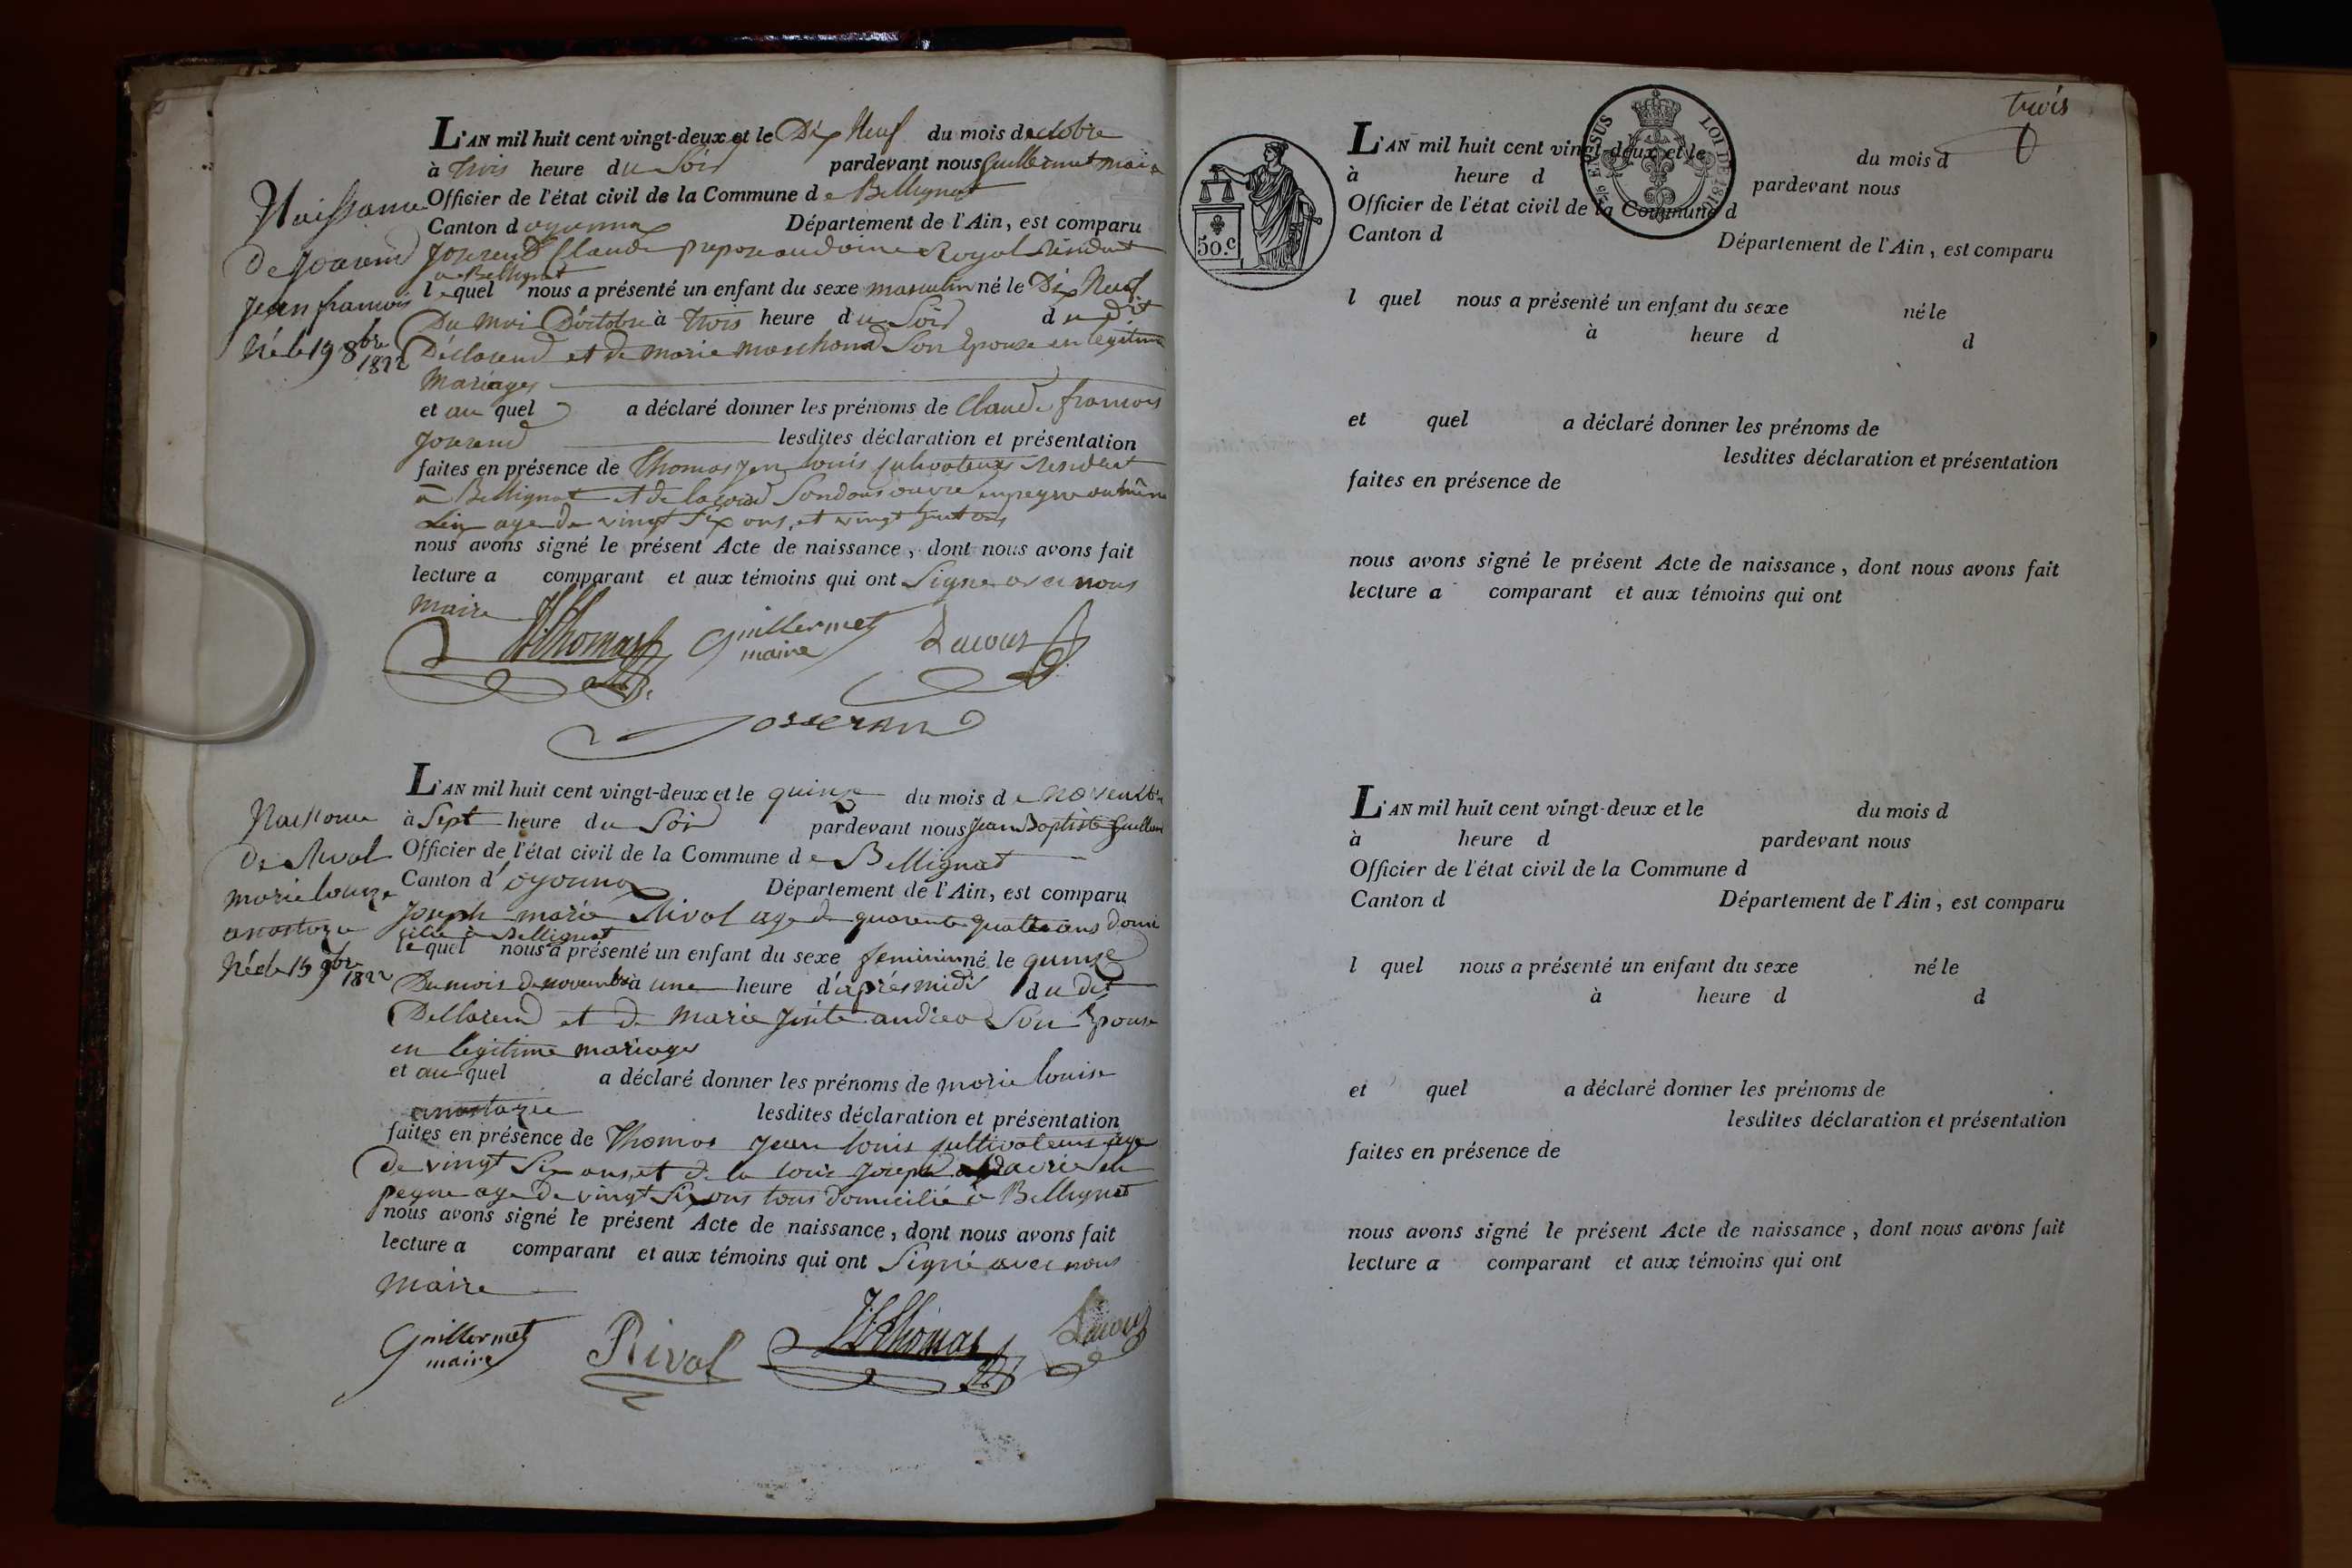 L'AN mil huit cent vingt-deux et le Dix Neuf du mois doctobre
à trois heure du Soir pardevant nous Guillermet maire
Officier de l'état civil de la Commune de Bellignat
Canton d'oyonna Département de l'Ain, est comparu
Josserend Claude propose au doine Royal Résidant
a Bellignat
lequel nous a présenté un enfant du sexe masculin né le Dix Neuf
Du moi D'octobre à trois heure du Soir du dit
Déclarend et de marie marchand Son Epouse en legitime
Mariages
et au quel a déclaré donner les prénoms de Claude francois
Joserend lesdites déclaration et présentation
faites en présence de Thomas jen louis cultivateurs Residant
à Bellignat et de lacour
age de vingt Six ans, et vingt huit ans
nous avons signé le présent Acte de naissance, dont nous avons fait
lecture a comparant et aux témoins qui ont Signe avec nous
maire
Naissance
De Joserend
Jean francois
Né le 19 8bre
1822
JLThomas Guillermet Lacour
maire
Josserand
L'AN mil huit cent vingt-deux et le quinze du mois de novembre
à Sept heure du Soir pardevant nous Jean Baptiste Guillerm
Officier de l'état civil de la Commune de Bellignat
Canton d'oyonna Département de l'Ain, est comparu
Joseph marie Rival age de quarente quatre ans domi
cilié à Bellignat
lequel nous a présenté un enfant du sexe feminin né le quinze
Du mois de novembre à une heure d'après midi du dit
Dellarend et de Marie Josite andrea Son Epouse
en legitime mariages
et au quel a déclaré donner les prénoms de marie louise
anastazie lesdites déclaration et présentation
faites en présence de Thomas jean louis cultivateurs age
de vingt Six ans, et de la cour joseph ouvrié en
peigne age de vingt Six ans tous domicilié à Bellignat
nous avons signé le présent Acte de naissance, dont nous avons fait
lecture a comparant et aux témoins qui ont Signé avec nous
Maire
Naissance
De Rival
marie louize
anastazie
Née le 15 9bre
1822
Guillermet Rival JLThomas Lacour
maire
trois
50.c
EN SUS LOI DE 1816
L'AN mil huit cent vingt-deux et le du mois d
à heure d pardevant nous
Officier de l'état civil de la Commune d
Canton d Département de l'Ain, est comparu
l quel nous a présenté un enfant du sexe né le
à heure d d
et quel a déclaré donner les prénoms de
lesdites déclaration et présentation
faites en présence de
nous avons signé le présent Acte de naissance, dont nous avons fait
lecture a comparant et aux témoins qui ont
L'AN mil huit cent vingt-deux et le du mois d
à heure d pardevant nous
Officier de l'état civil de la Commune d
Canton d Département de l'Ain, est comparu
l quel nous a présenté un enfant du sexe né le
à heure d d
et quel a déclaré donner les prénoms de
lesdites déclaration et présentation
faites en présence de
nous avons signé le présent Acte de naissance, dont nous avons fait
lecture a comparant et aux témoins qui ont